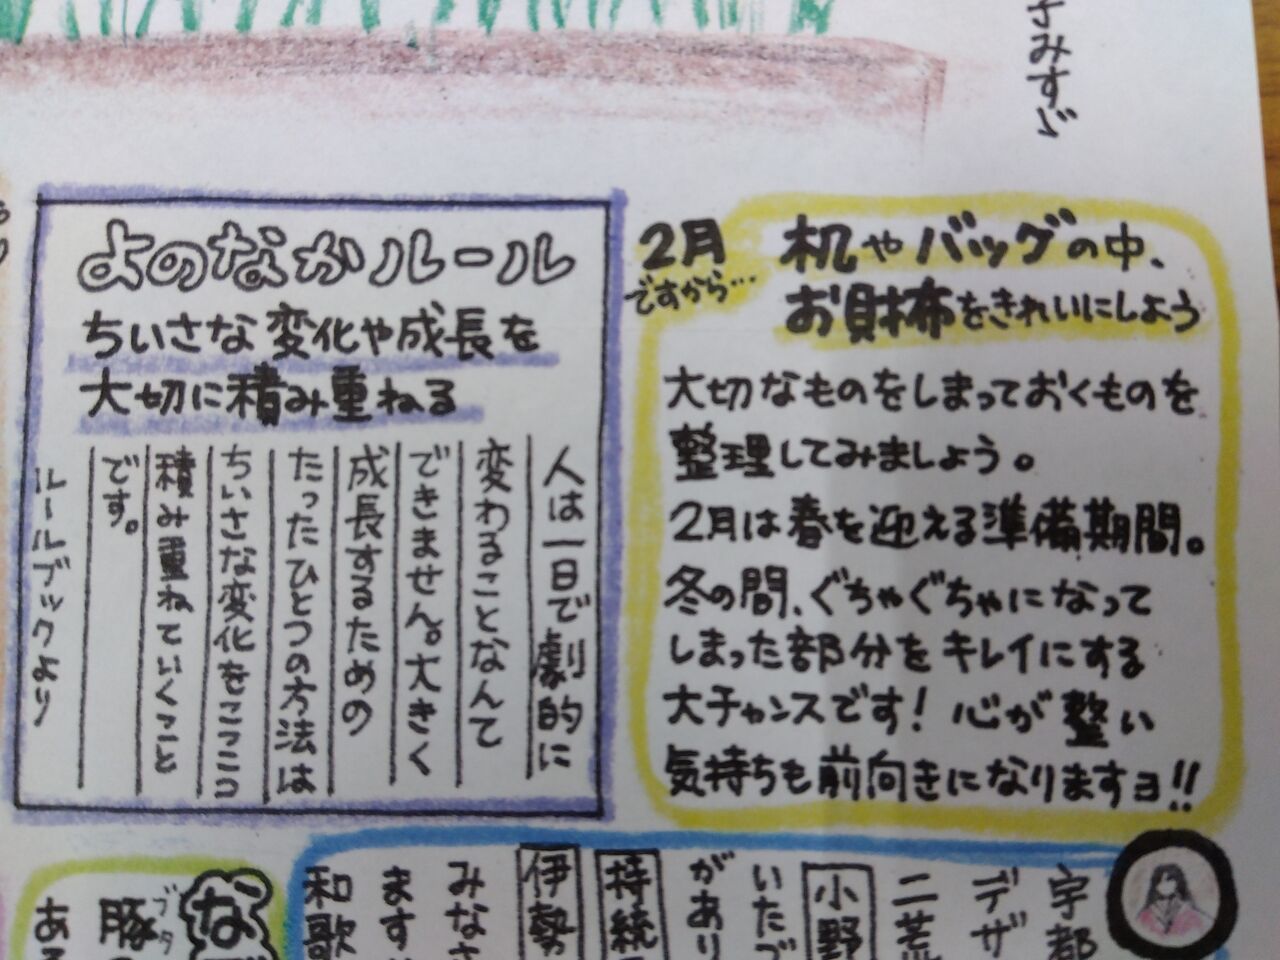 子みすゞ
よのなかルール
ちいさな変化や成長を
大切に積み重ねる
人は一日で劇的に
変わることなんて
できません。大きく
成長するための
たったひとつの方法は
ちいさな変化をコツコツ
積み重ねていくこと
です。
ルールブックより
2月
ですから…
机やバッグの中、
お財布をきれいにしよう
大切なものをしまっておくものを
整理してみましょう。
2月は春を迎える準備期間。
冬の間、ぐちゃぐちゃになって
しまった部分をキレイにする
大チャンスです！心が整い
気持ちも前向きになりますヨ!!
宇都
デザ
二荒
小野
いたづ
があり
持統
伊勢
みなさ
ます
和歌
な
豚
ブタ
ある